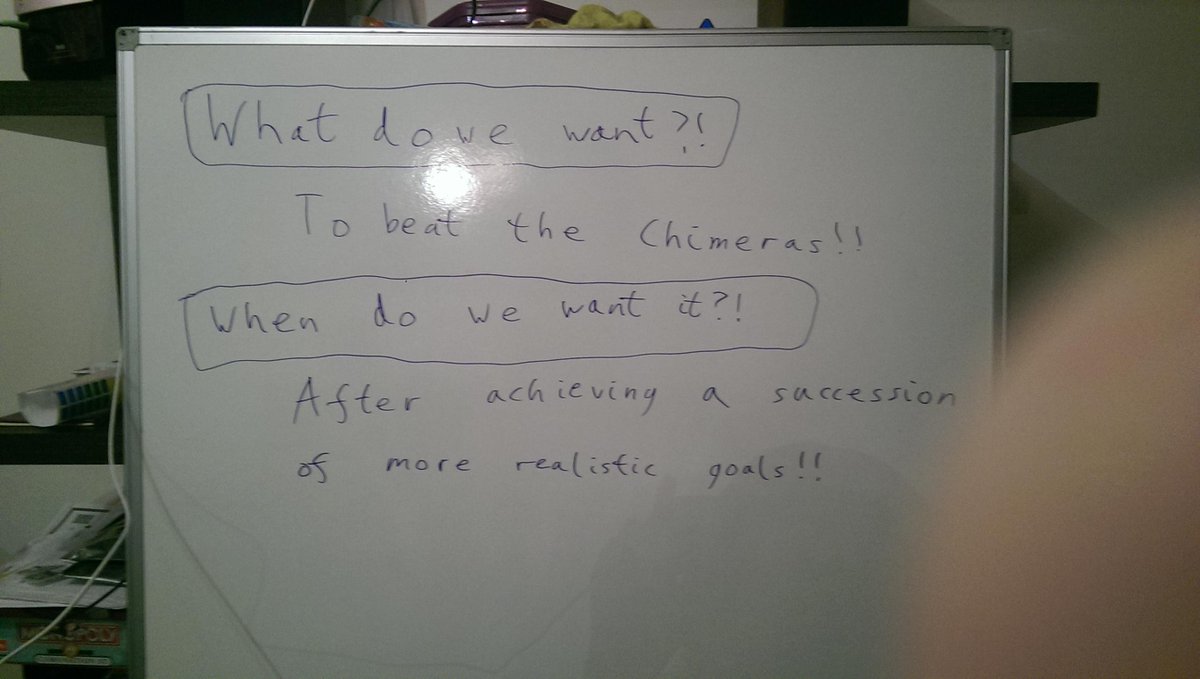 What do we want?!
To beat the Chimeras!!
When do we want it?!
After achieving a succession
of more realistic goals!!
MONOPOLY